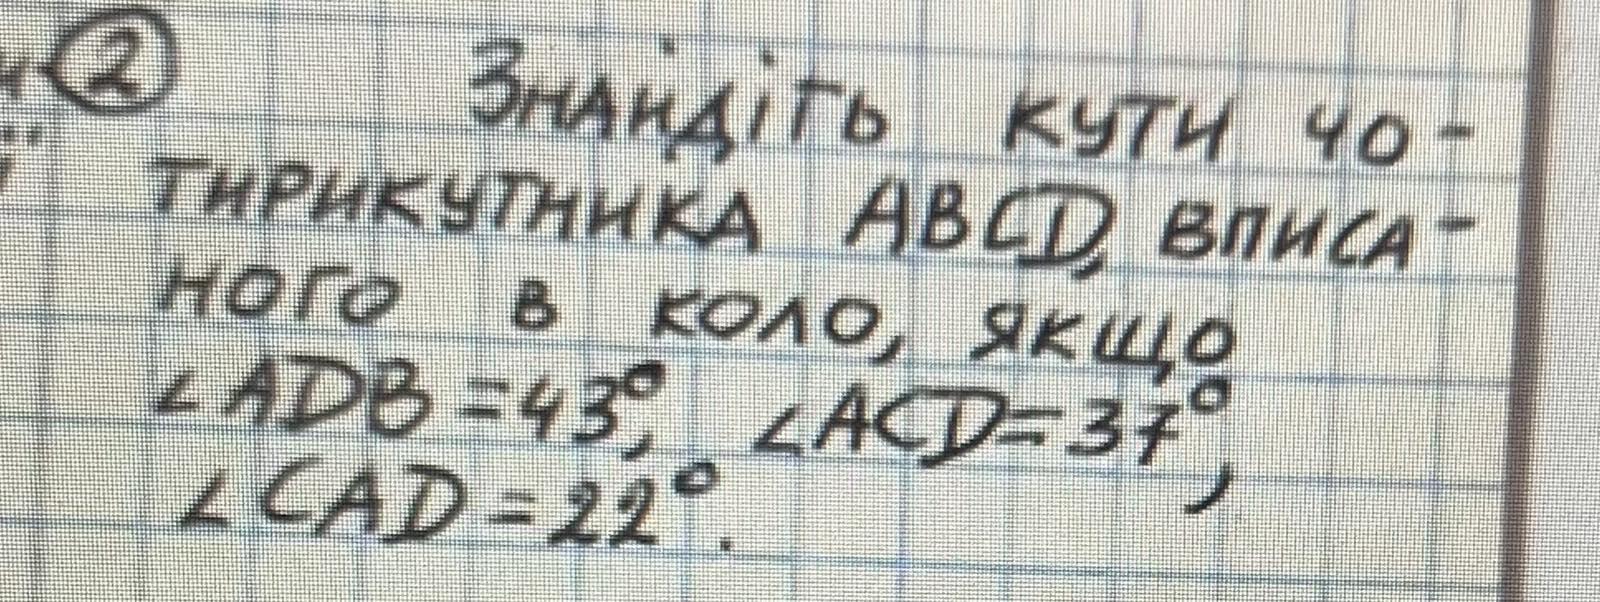 2 Знайдіть кути чо-
тирикутника ABCD, вписа-
ного в коло, якщо
∠ADB=43°, ∠ACD=37°,
∠CAD=22°.